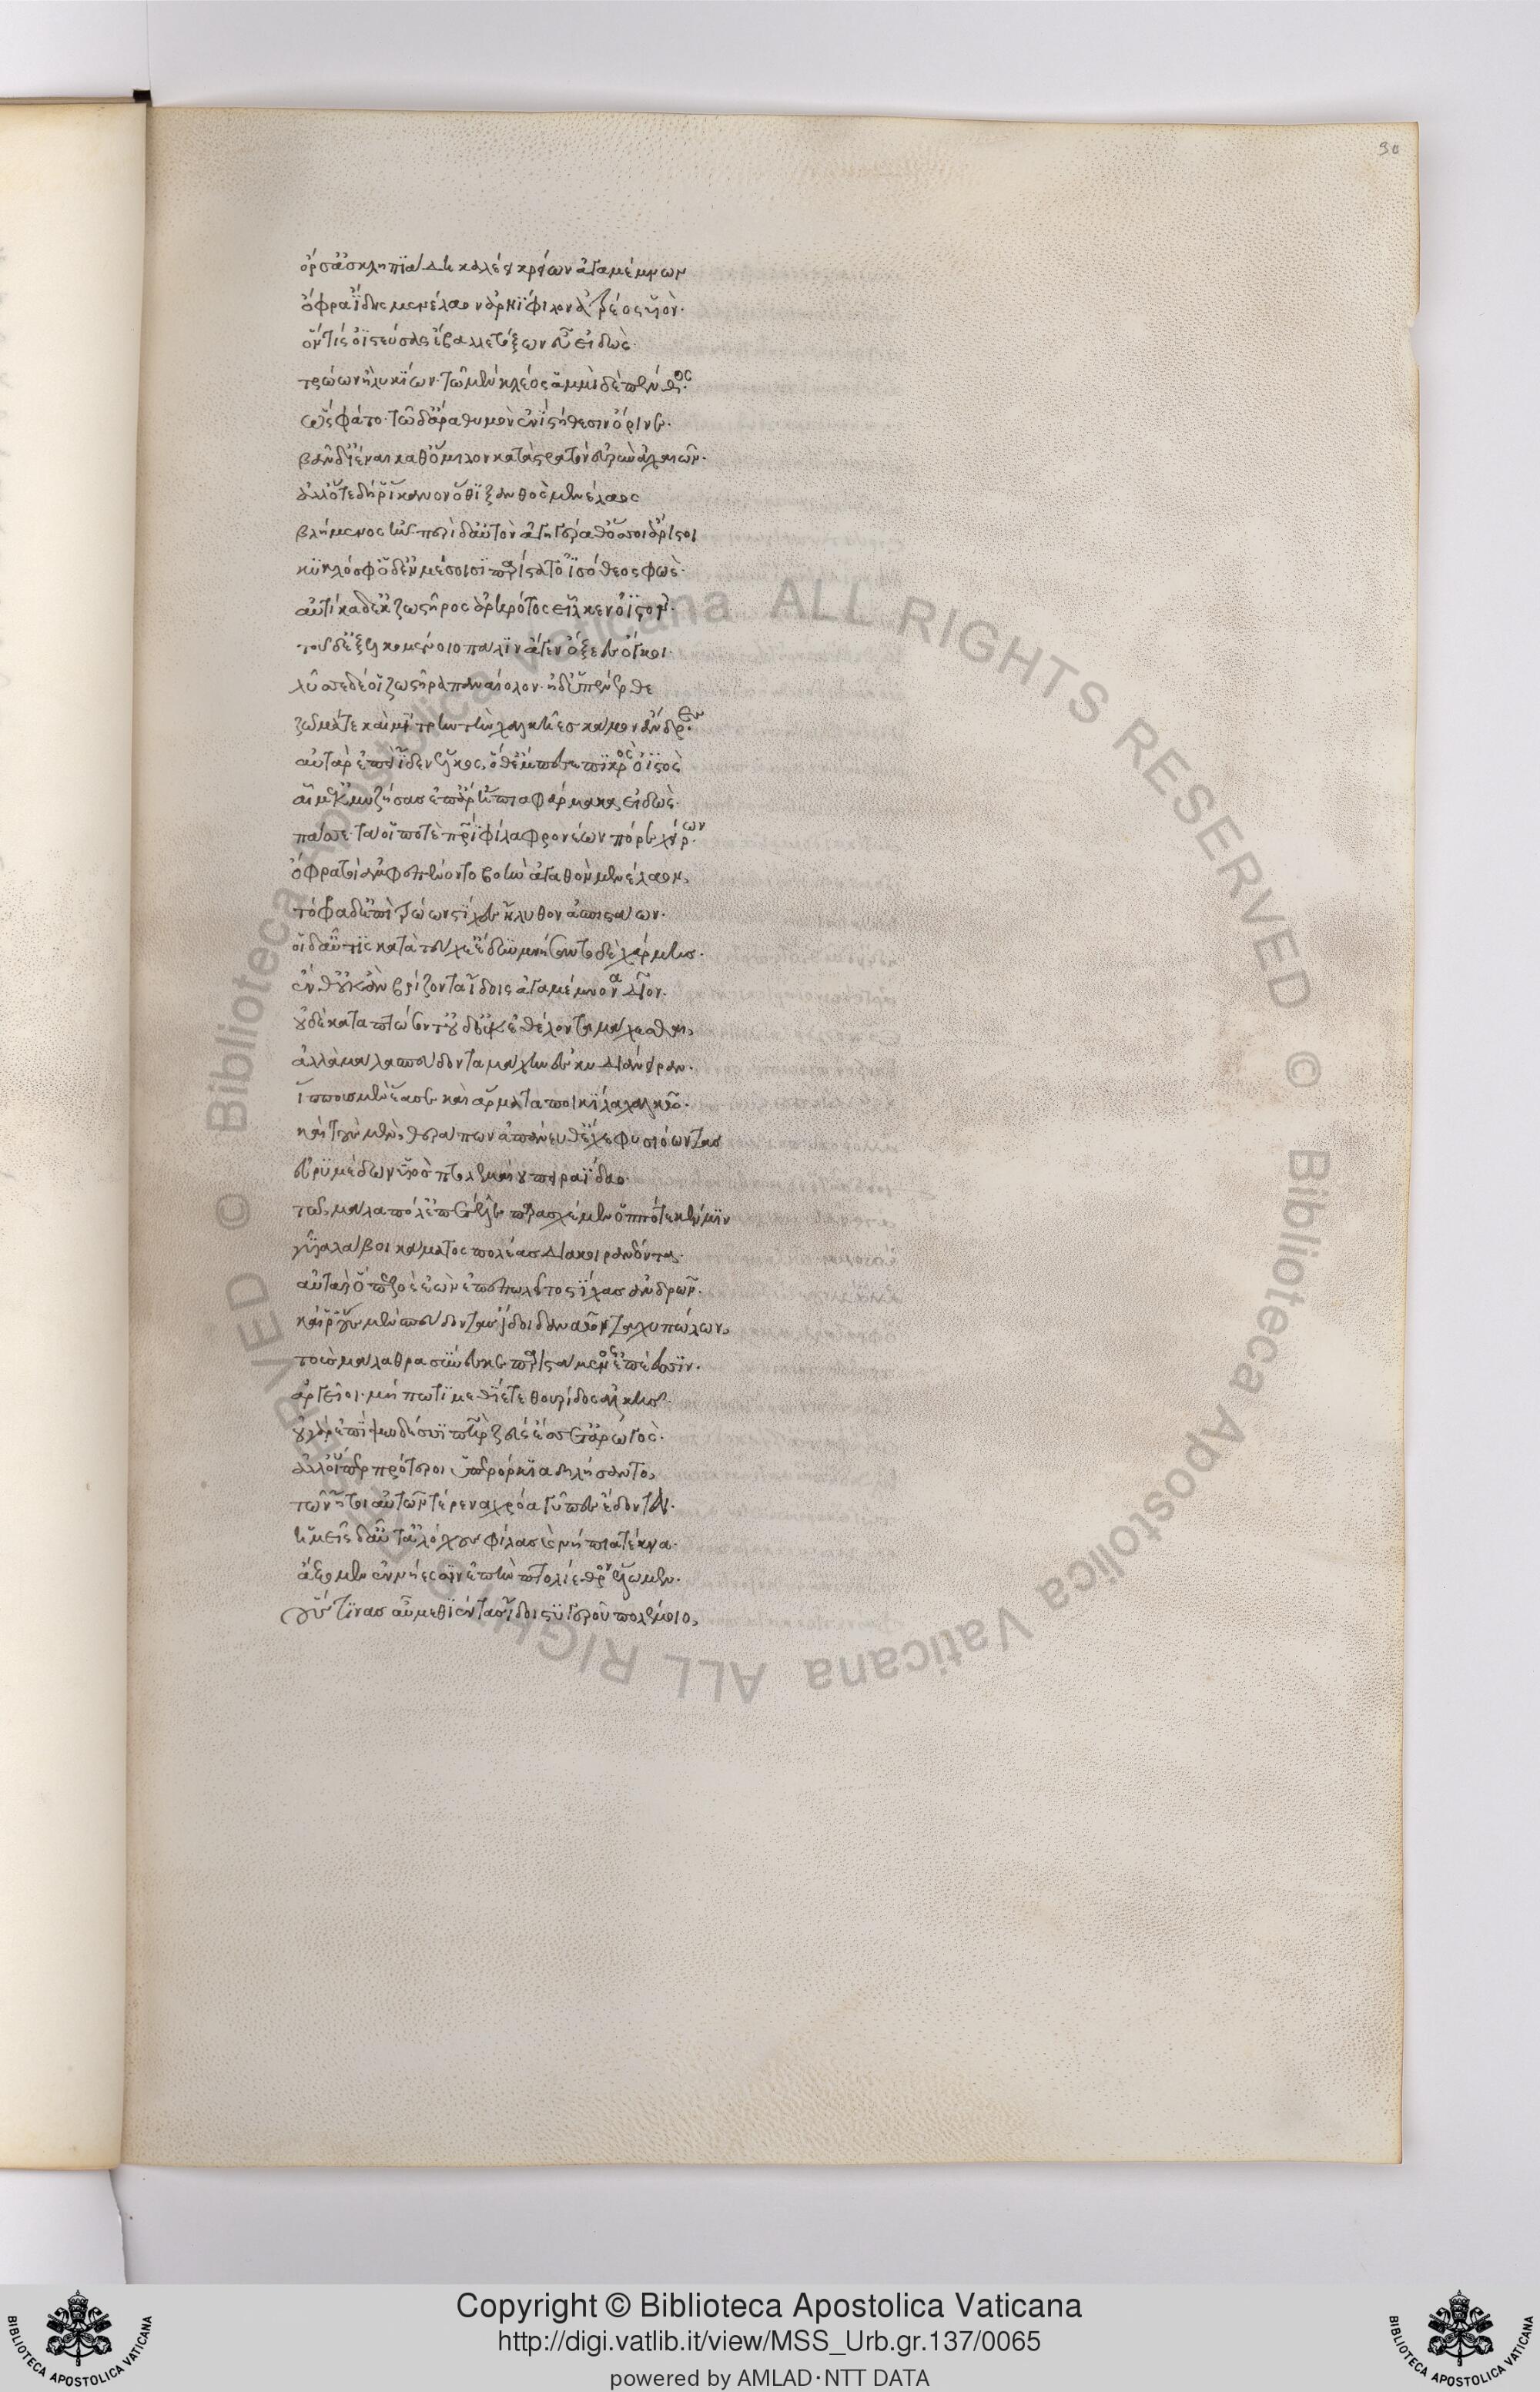 30
ὄρσ' ἀσκληπιάδη καλέει κρείων ἀγαμέμνων
ὄφρα ἴδης μενέλαον ἀρήϊφιλον ἀτρέος υἱόν.
ὅν τις ὀϊστεύσας ἔβαλλε τόξων εὖ εἰδώς.
τρώων ἢ λυκίων. τῶ μὲν κλέος ἄμμι δὲ πένθος.
ὣς φάτο. τῶ δ' ἄρα θυμὸν ἐνὶ στήθεσιν ὄρινε.
βῆ δ' ἰέναι καθ' ὅμιλον κατὰ στρατὸν εὐρὺν ἀχαιῶν.
ἀλλ' ὅτε δή ῥ' ἵκανον ὅθι ξανθὸς μενέλαος
βλήμενος ἦν. περὶ δ' αὐτὸν ἀγηγέραθ' ὅσσοι ἄριστοι
κυκλόσ' ὁ δ' ἐν μέσοισι παρίστατο ἰσόθεος φώς.
αὐτίκα δ' ἐκ ζωστῆρος ἀρηρότος εἷλκεν ὀϊστόν.
τοῦ δ' ἐξελκομένοιο πάλιν ἄγεν ὀξέες ὄγκοι.
λῦσε δέ οἱ ζωστῆρα παναίολον. ἠδ' ὑπένερθε
ζῶμά τε καὶ μίτρην τὴν χαλκῆες κάμον ἄνδρες.
αὐτὰρ ἐπεὶ ἴδεν ἕλκος, ὅθ' ἔμπεσε πικρὸς ὀϊστὸς
αἷμ' ἐκμυζήσας ἐπ' ἄρ' ἤπια φάρμακα εἰδώς.
πάσσε. τά οἵ ποτε πατρὶ φίλα φρονέων πόρε χείρων.
ὄφρα τοὶ ἀμφεπένοντο βοὴν ἀγαθὸν μενέλαον,
τόφρα δ' ἐπὶ τρώων στίχες ἤλυθον ἀσπιστάων.
οἱ δ' αὖτις κατὰ τεύχε' ἔδυν μνήσαντο δὲ χάρμης.
ἔνθ' οὐκ ἂν βρίζοντα ἴδοις ἀγαμέμνονα δῖον.
οὐδὲ καταπτώσοντ' οὐδ' οὐκ ἐθέλοντα μάχεσθαι,
ἀλλὰ μάλα σπεύδοντα μάχην ἐς κυδιάνειραν.
ἵππους μὲν ἔασε καὶ ἅρματα ποικίλα χαλκῶ.
καὶ τοὺς μὲν, θεράπων ἀπάνευθ' ἔχε φυσιόωντας
εὐρυμέδων υἱὸς πτολεμαίου πειραΐδαο.
τῶ, μάλα πόλλ' ἐπέτελλε παρασχέμεν ὁππότε κέν μιν
γυῖα λάβοι κάματος πολέας διακοιρανέοντα.
αὐτὰρ ὁ πεζὸς ἐὼν ἐπεπωλεῖτο στίχας ἀνδρῶν.
καί ῥ' οὓς μὲν σπεύδοντας ἴδοι δαναῶν ταχυπώλων,
τοὺς μάλα θρασύνεσκε παριστάμενος ἐπέεσσιν.
ἀργεῖοι. μή πώ τι μεθίετε θούριδος ἀλκῆς.
οὐ γὰρ ἐπὶ ψευδέσσι πατὴρ ζεὺς ἔσσετ' ἀρωγός.
ἀλλ' οἵπερ πρότεροι ὑπὲρ ὅρκια δηλήσαντο,
τῶν ἤτοι αὐτῶν τέρενα χρόα γῦπες ἔδονται.
ἡμεῖς δ' αὖτ' ἀλόχους φίλας καὶ νήπια τέκνα.
ἄξομεν ἐν νήεσσιν ἐπὴν πτολίεθρον ἕλωμεν.
οὕς τινας αὖ μεθιέντας ἴδοι στυγεροῦ πολέμοιο,
Copyright © Biblioteca Apostolica Vaticana
http://digi.vatlib.it/view/MSS_Urb.gr.137/0065
powered by AMLAD·NTT DATA